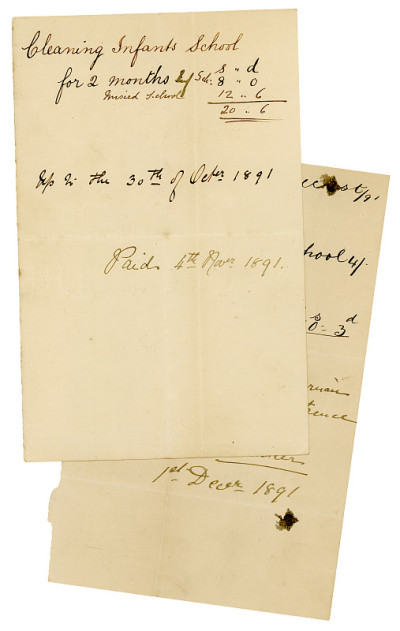 Cleaning Infants School
s " d
for 2 months 4/ Sch: 8 " 0
Mixed School 12 " 6
20 " 6
Up to the 30th of Octer 1891
Paid 4th Novr 1891.
/91
hool 4/.
s d
0 - 3
1st Decer 1891